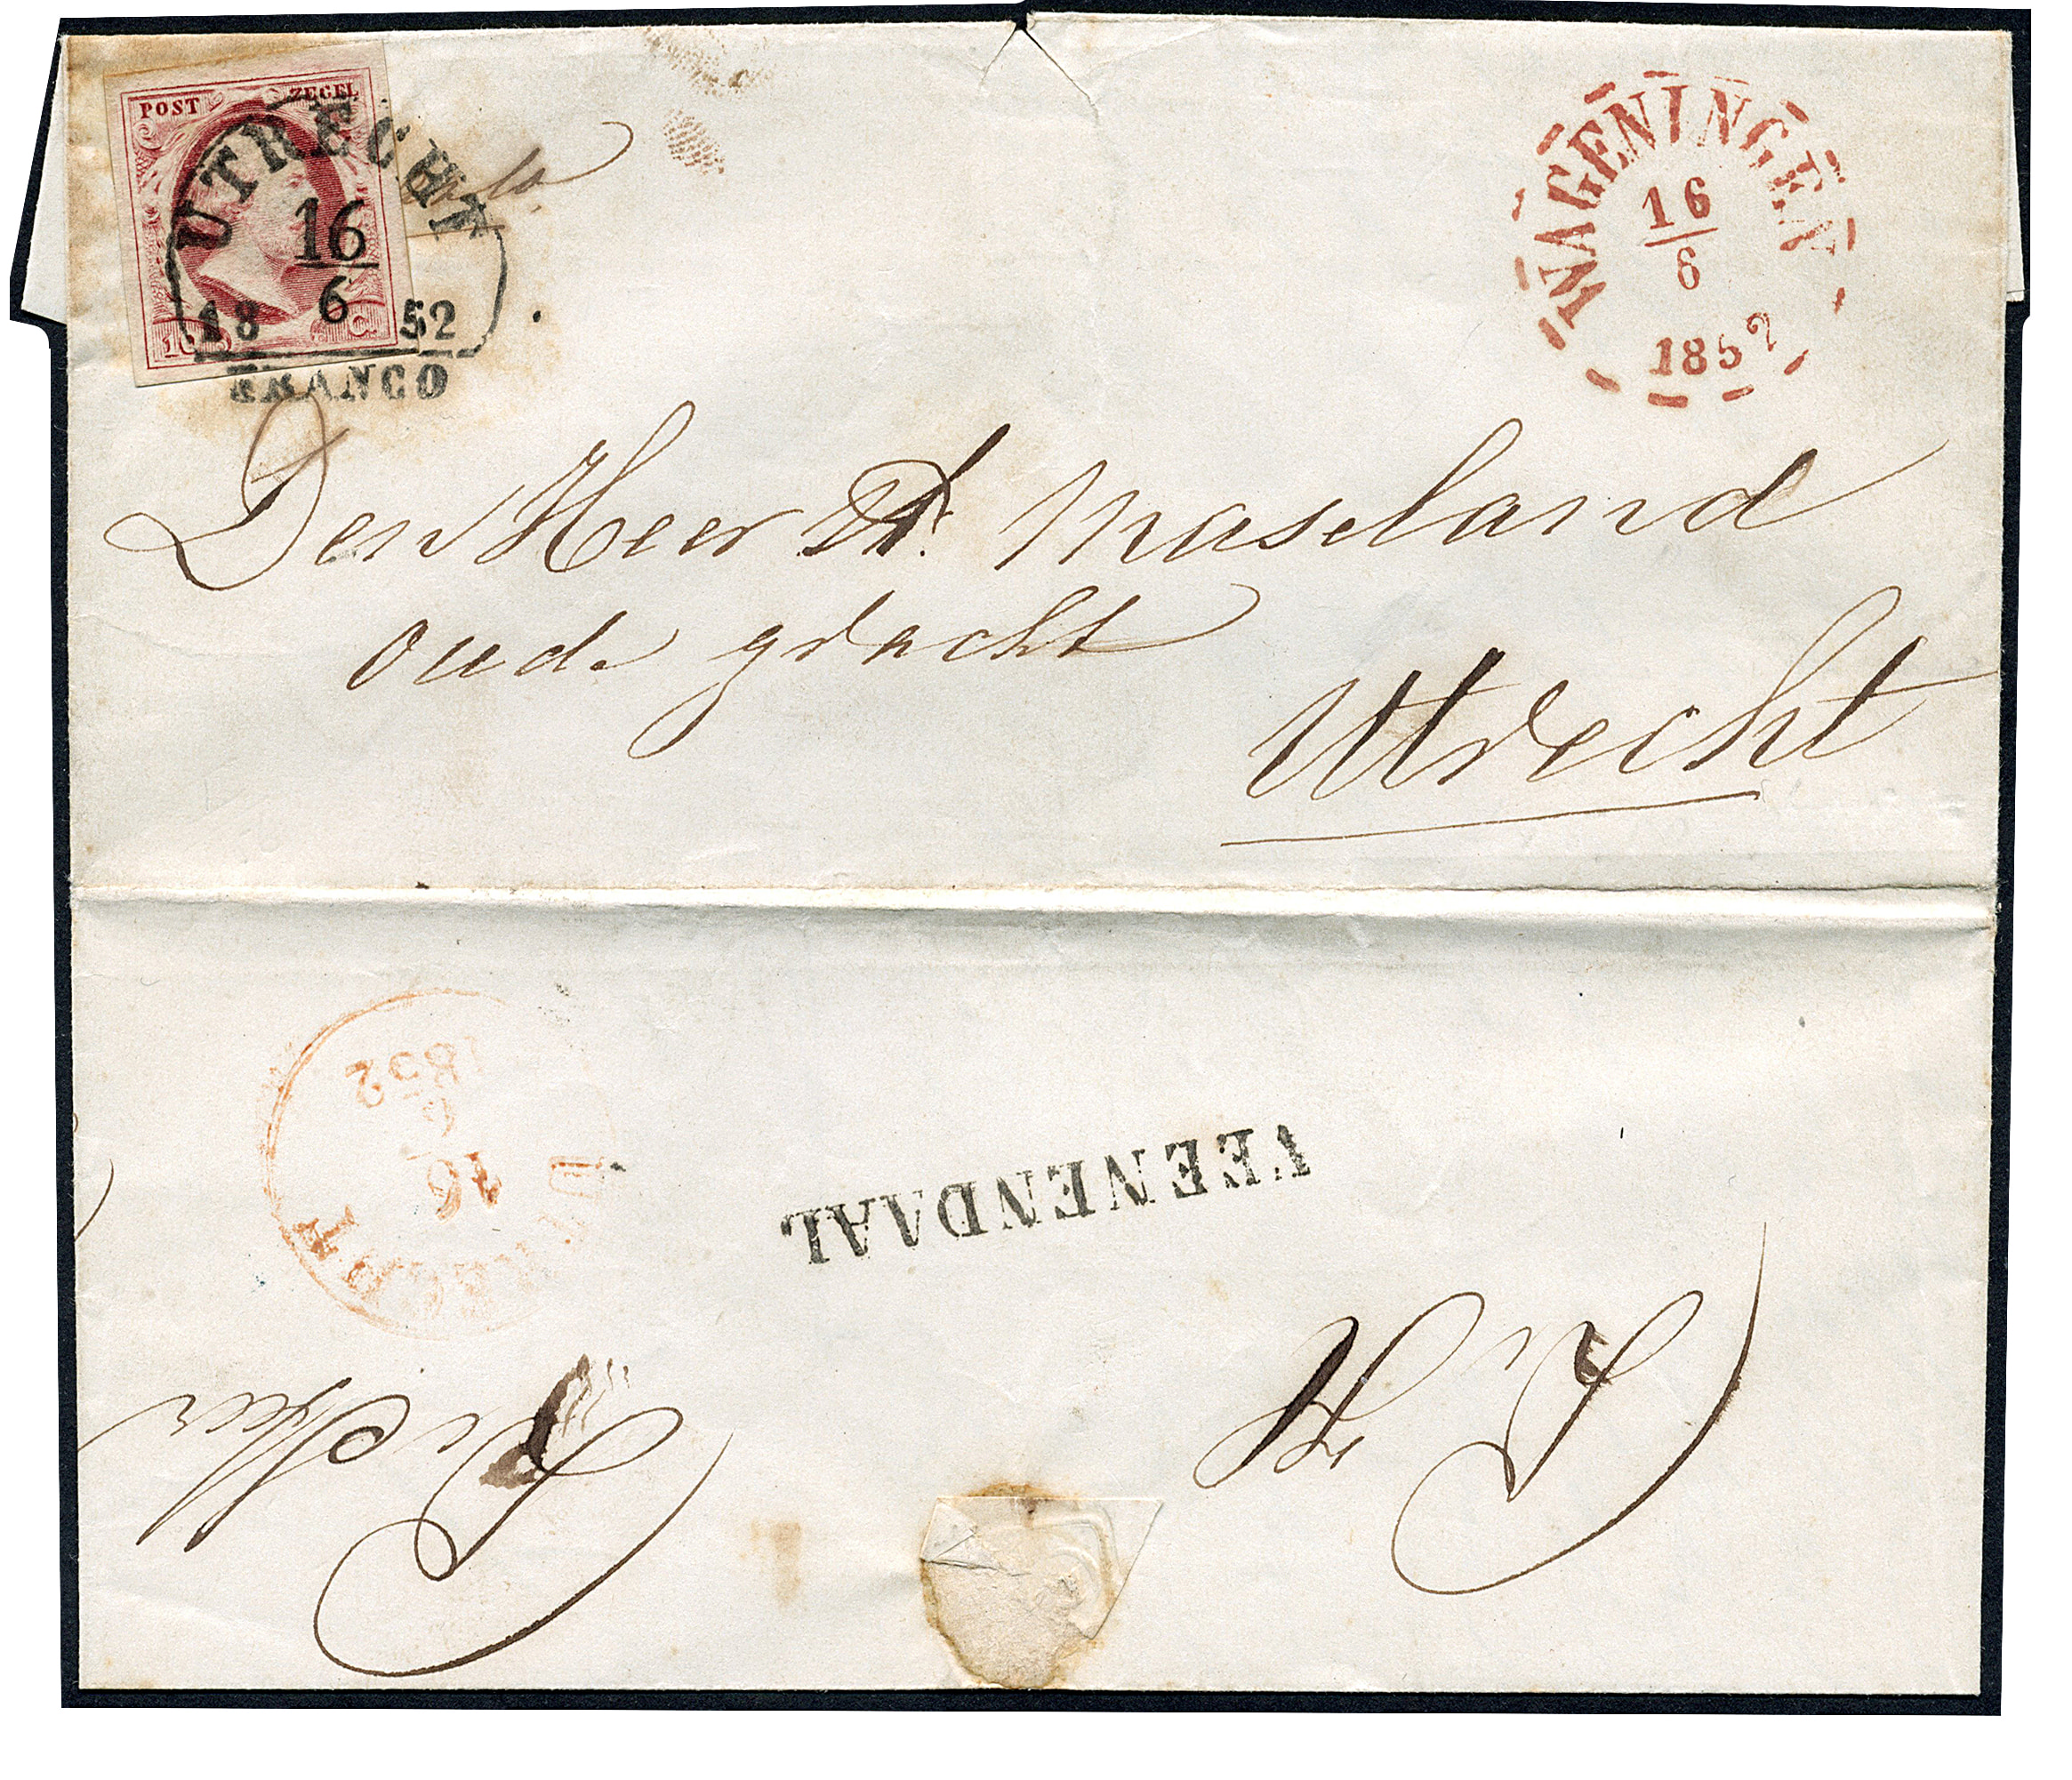 POST ZEGEL
10 C.
UTRECHT
16
6
18 52
FRANCO
WAGENINGEN
16
6
1852
Den Heer Maseland
oude gracht
Utrecht
UTRECHT
16
6
1852
VEENENDAAL